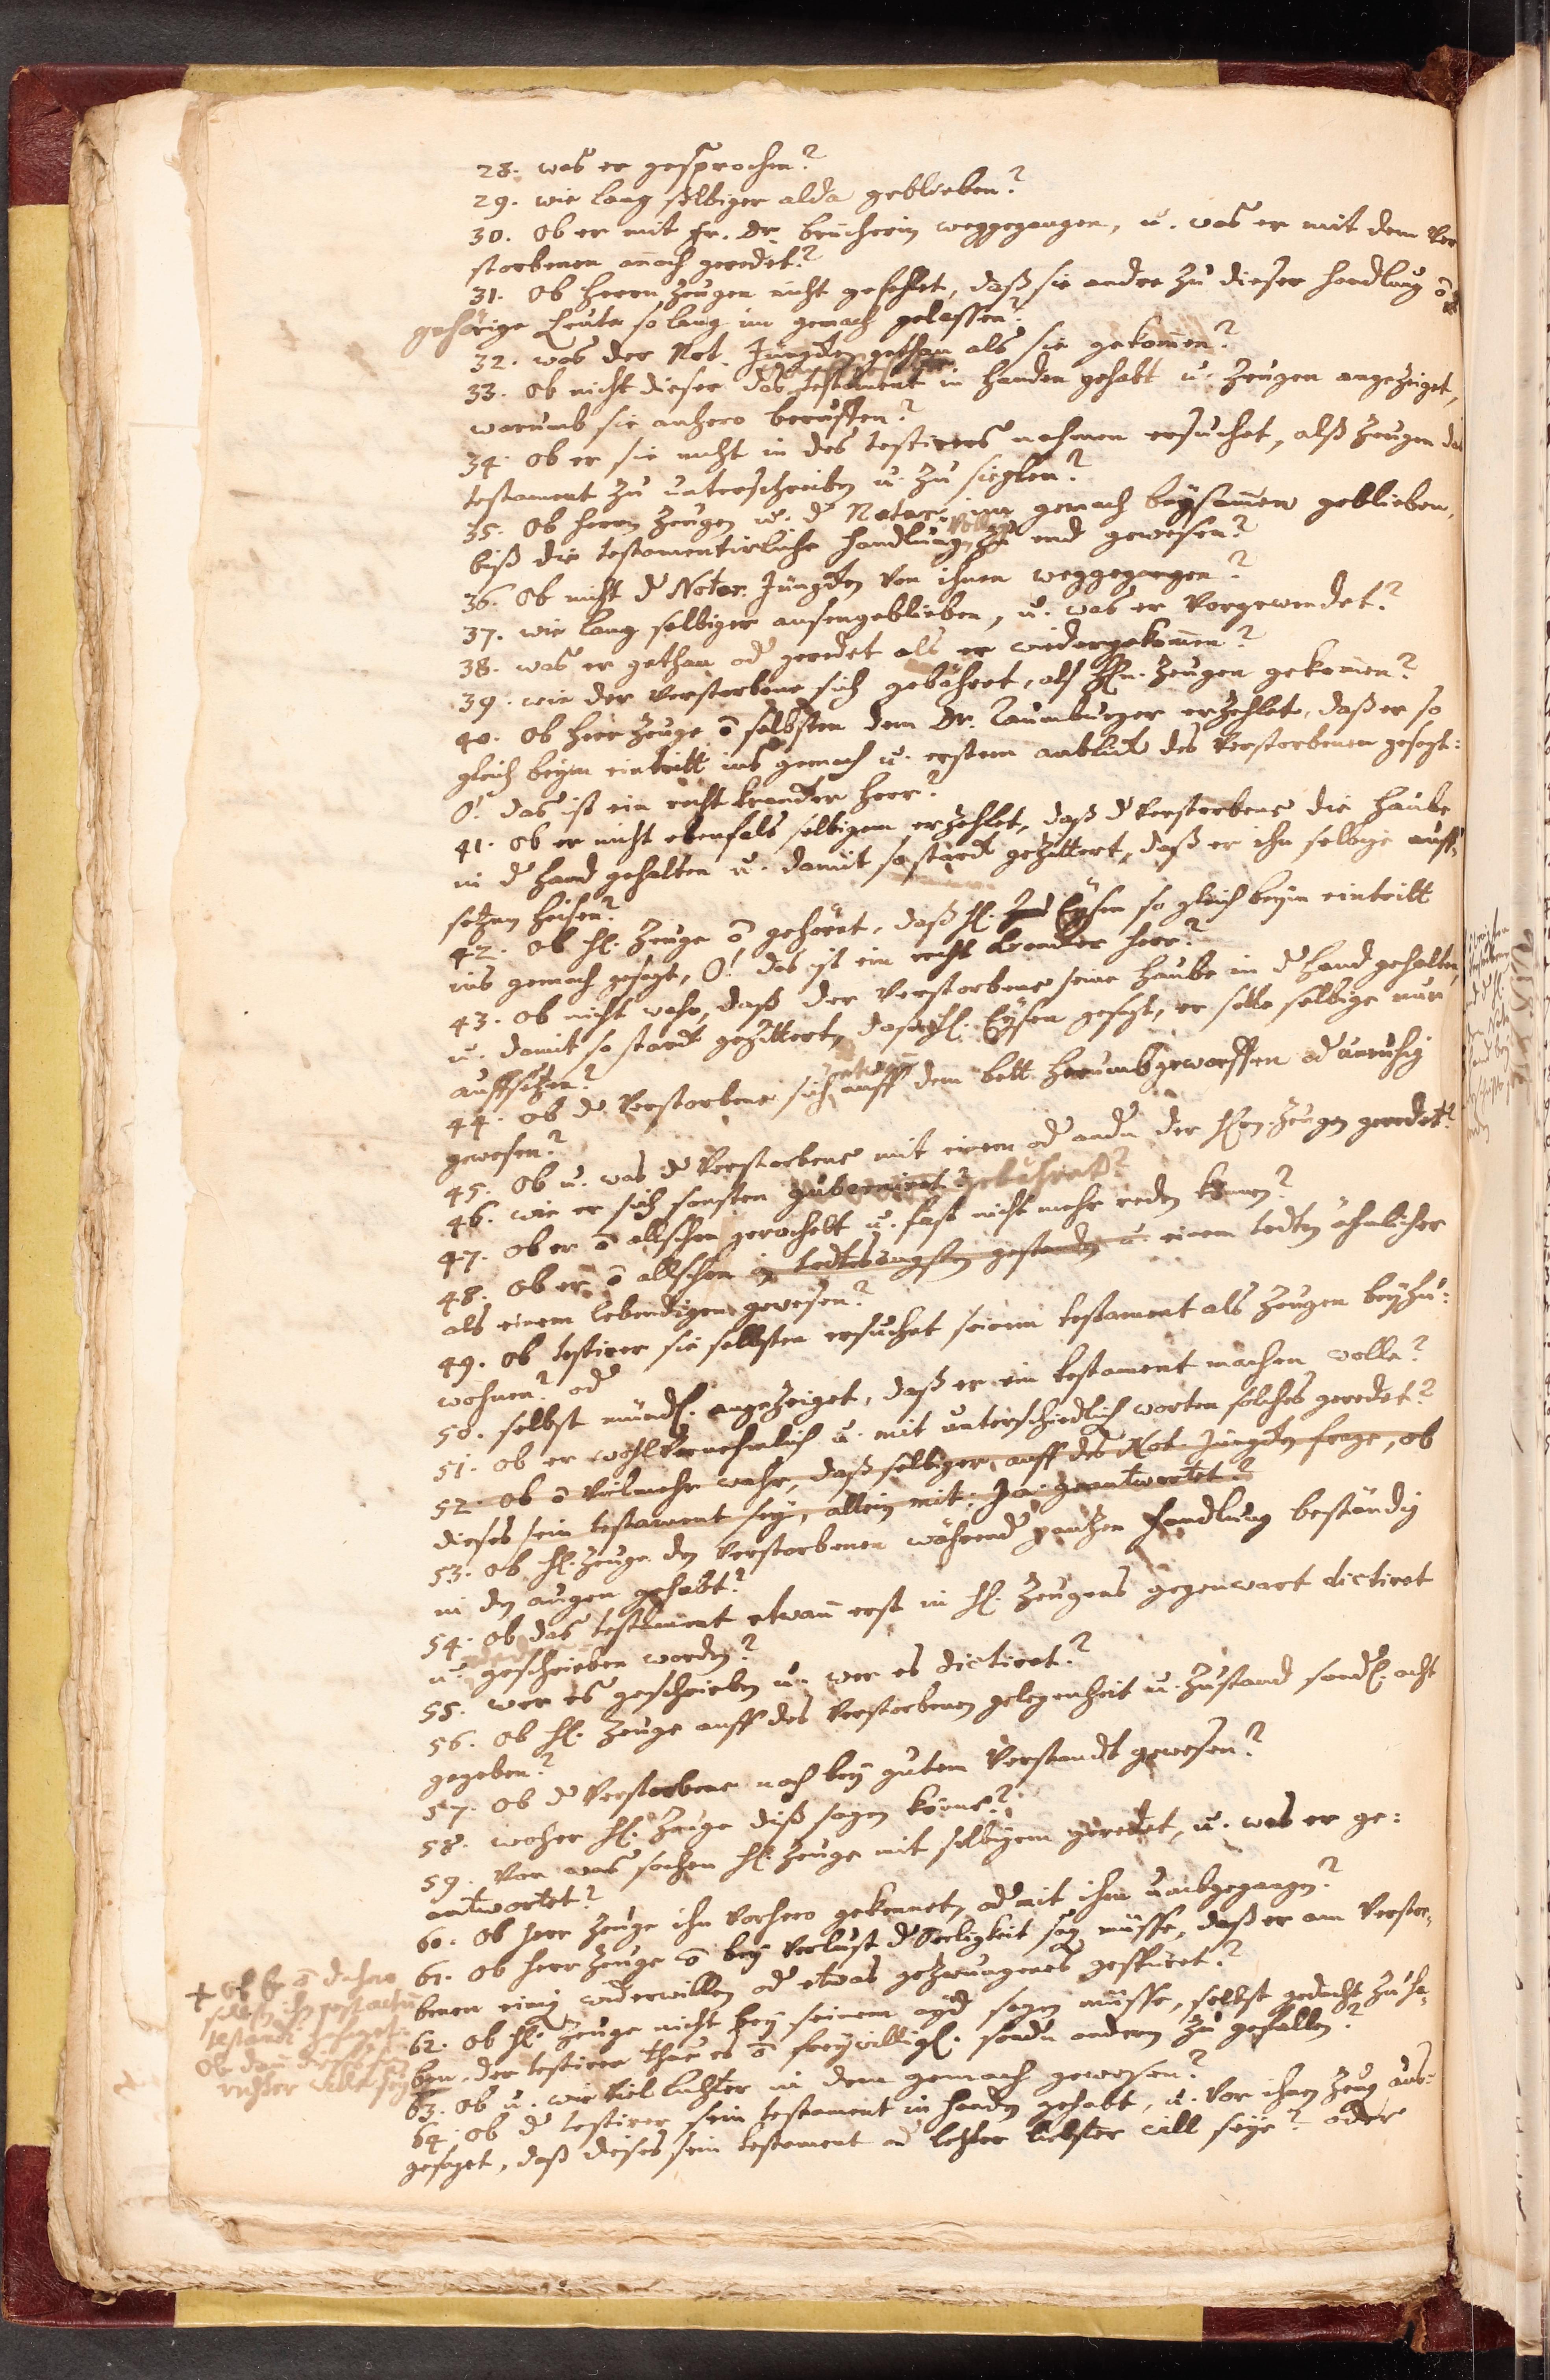 28. was er gesprochen?
29. wie lang selbiger alda geblieben?
30. Ob er mit Fr. Dr. brücherin weggegangen, u. was er mit dem Ver
storbenen annoch geredet?
31. Ob Herrn Zeugen nicht gefehlet, daß sie andre zu dieser handlung ō
gehörige Leute so lang im gemach gelassen?
32. was der Not. Jungden gethan als sie gekom̄en?
33. Ob nicht dieser das testament in handen gehabt u. Zeugen angezeiget,
warumb sie anhero beruffen?
34. Ob er sie nicht in des testirers nahmen ersuchet, alß Zeugen das
testament zu unterschreiben u. zu sieglen?
35. Ob herrn Zeugen u. d Notar. im gemach beysam̄en geblieben,
biß die testamentirliche handlung völlig zu end gewesen?
36. Ob nicht d Notar. Jungden von ihnen weggegangen?
37. wie lang selbiger aussengeblieben, u. was er vorgewendet?
38. was er gethan od geredet als er widergekom̄en?
39. wie der verstorbene sich gebährdet, als hhn. Zeugen gekom̄en?
40. Ob herr Zeuge ō selbsten dem Dr. Naumburger erzehlet, daß er so
gleich beym eintritt ins gemach u. erstem anblick des verstorbenen gesagt:
O! das ist ein recht krancker herr?
41. Ob er nicht ebenfals selbigem erzehlet, daß d verstorbene die haube
in d hand gehalten u. damit so starck gezittert, daß er ihn selbige auff,
setzen heisen?
42. Ob hl. Zeuge ō gehöret, daß hl. Eysen so gleich beym eintritt
ins gemach gesagt, O! das ist ein recht krancker herr?
43. Ob nicht wahr, daß der verstorbene seine haube in d hand gehalten,
u. damit so starck gezittert, daß hl. Eysen gesagt, er solle selbige nur
auffsetzen?
44. Ob d verstorbene sich etwan auff dem bett herumbgeworffen od unruhig
gewesen?
45. Ob u. was d verstorbene mit einem od andn der hhn. Zeugen geredet?
46. wie er sich sonsten gebährdet?
47. Ob er ō allschon geröchelt u. fast nicht mehr reden kön̄en?
48. Ob er ō allschon in todtesängsten gestanden u. einem todten ähnlicher
als einem lebendigen gewesen?
49. Ob testirer sie selbsten ersuchet seinem testament als Zeugen beyzu:
wohnen? od
50. selbst mündl. angezeiget, daß er ein testament machen wolle?
51. Ob er wohlvernehmlich u. mit unterschiedlich worten solches geredet?
52. Ob ō vielmehr wahr, daß selbiger auff des Not. Jungden frage, ob
dieses sein testament sey, allein mit: Ja: geantwortet?
53. Ob hl. Zeuge den verstorbenen während gantzer handlung beständig
in den augen gehabt?
54. Ob das testament etwan̄ erst in hl. Zeugens gegenwart dictiret
u. geschrieben worden?
55. wer es geschrieben u. wer es dictiret?
56. Ob hl. Zeuge auff des verstorbenen gelegenheit u. Zustand sondl. acht
gegeben?
57. Ob d verstorbene noch bey gutem verstandt gewesen?
58. woher hl. Zeuge diß sagen kön̄e?
59. von was sachen hl. Zeuge mit selbigem geredet, u. was er ge:
antwortet?
60. Ob herr Zeuge ihn vorhero gekennet, od mit ihm umbgegangen?
61. Ob herr Zeuge ō bey verlust d Seeligkeit sagen müsse, daß er am verstor,
benen einig widerwillen od etwas gezwungenes gespüret?
62. Ob hl. Zeuge nicht bey seinem ayd sagen müsse, selbst gedacht zu ha,
ben, der testirer thue es ō freywilligl. sondn andern zu gefallen?
63. Ob u. wie viel lichter in dem gemach gewesen?
64. Ob d testirer sein testament in handen gehabt, u. vor ihnen Zeug. aus:
gesaget, daß dieses sein testament od letzter liebster will seye? oder
+ Ob er ō dahero